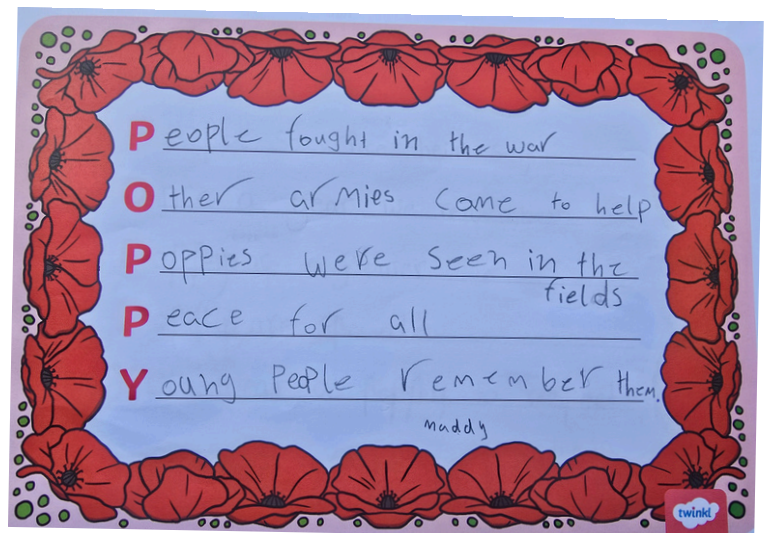 People fought in the war
Other armies came to help
Poppies were seen in the
fields
Peace for all
Young People remember them.
maddy
twinkl